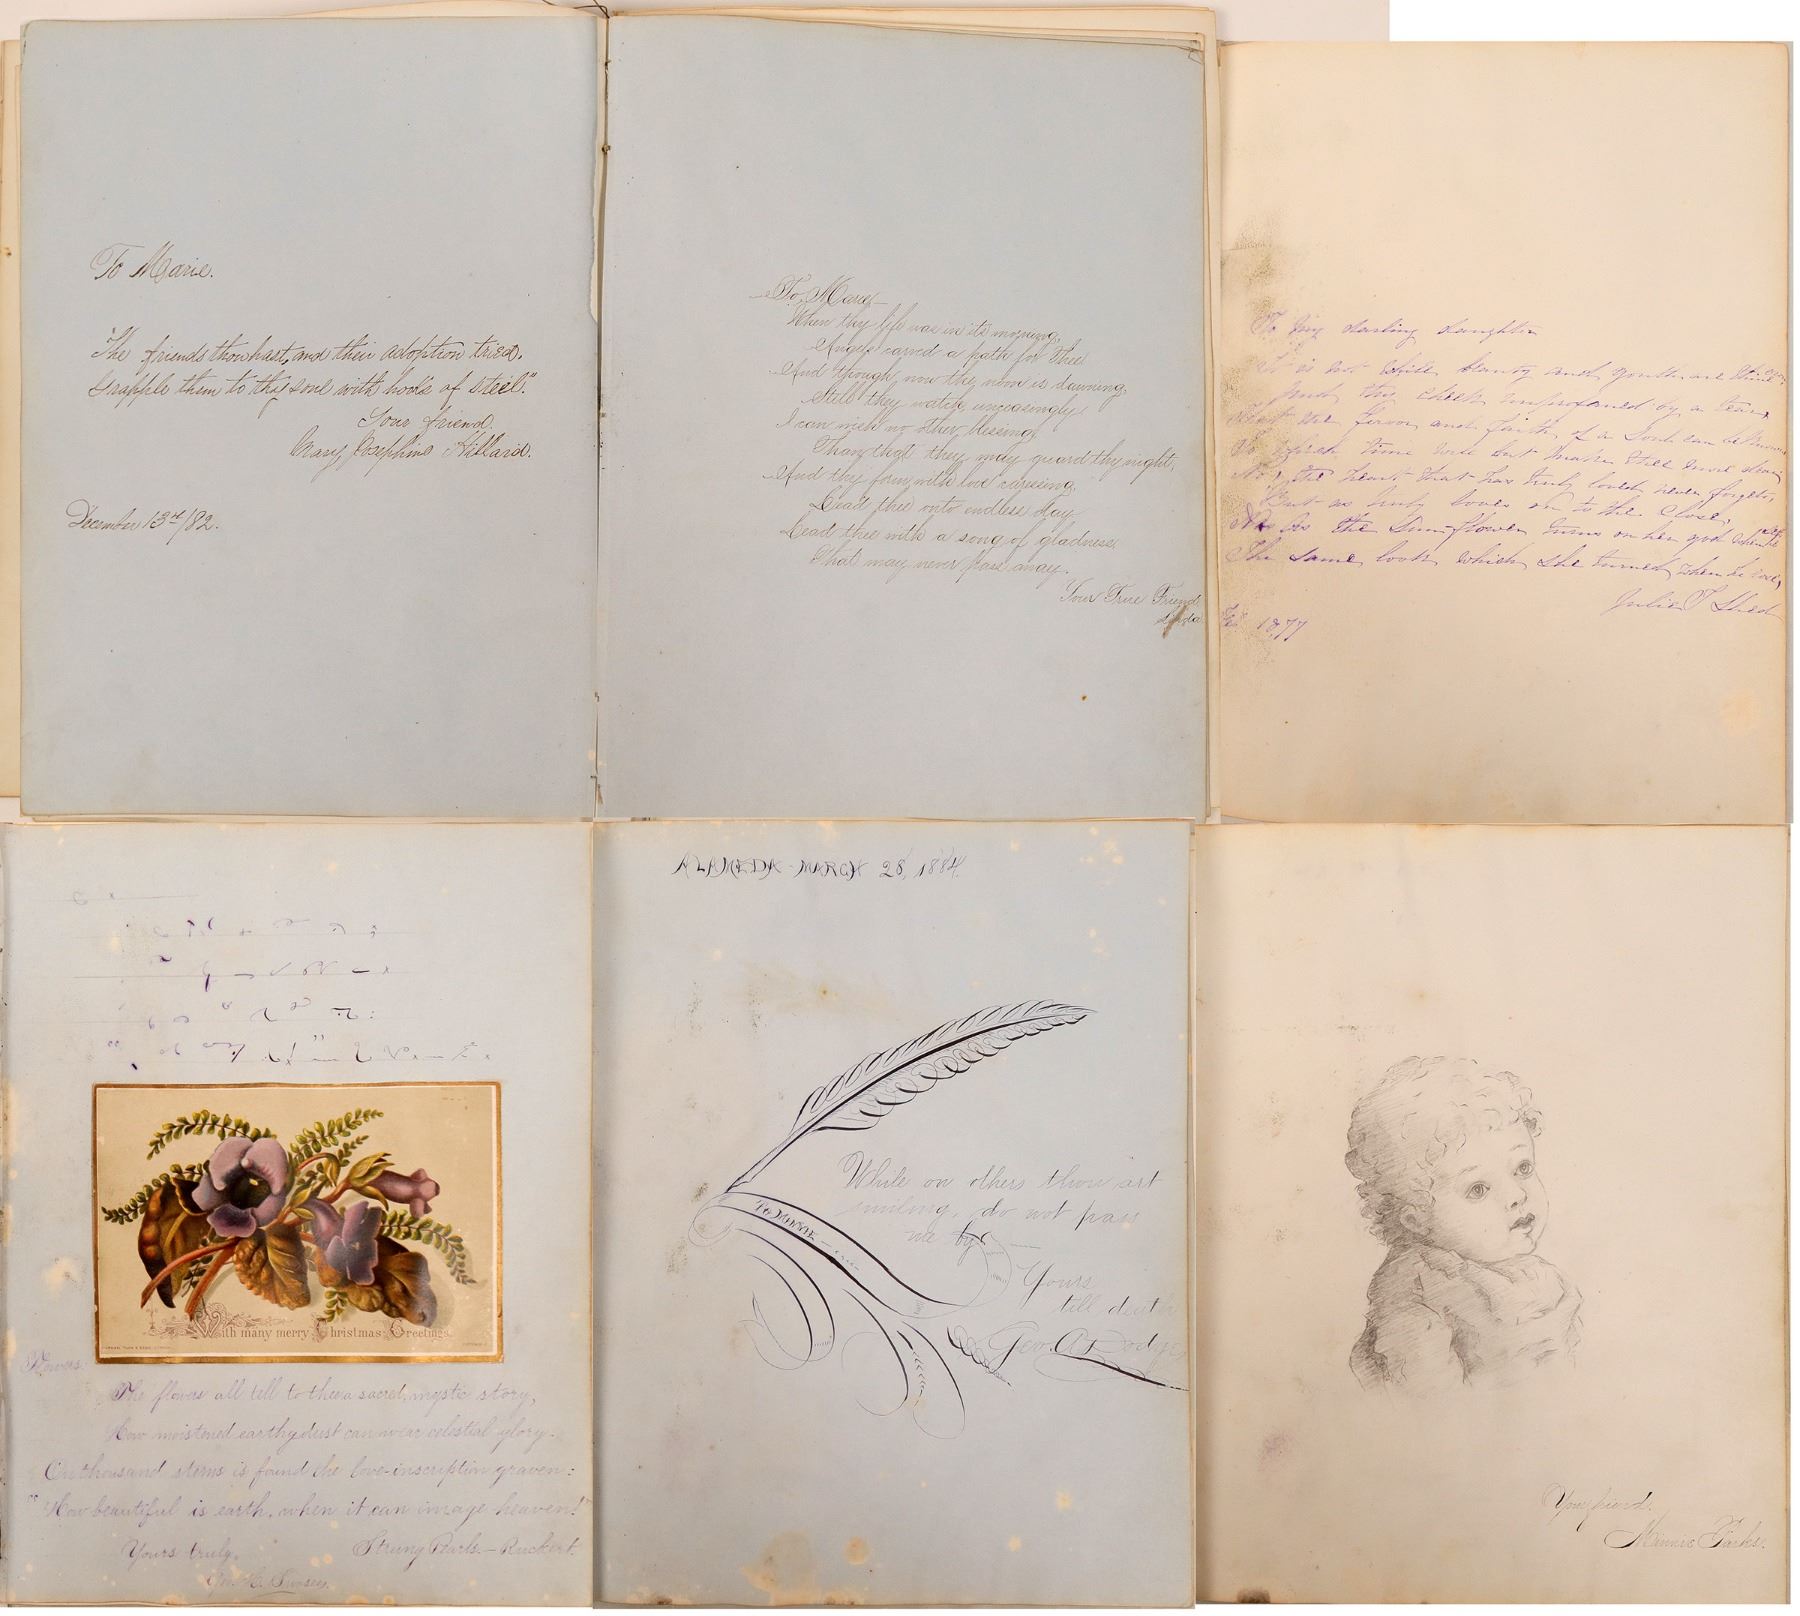 To Marie.
"The friends thou hast, and their adoption tried,
Grapple them to thy soul with hooks of steel."
Your friend.
Mary Josephine Hillard.
December 13th/82.
To Marie
When thy life was in its morning,
Angels carved a path for thee
And though now the noon is dawning,
Still they watch unceasingly.
I can wish no other blessing,
Than that they may guard thy night,
And thy form with love caressing,
Lead thee onto endless day
Lead thee with a song of gladness
That may never pass away.
Your True Friend
Linda
To my darling daughter
It is not while beauty and youth are thine own
And thy cheek unprofaned by a tear,
That the fervor and faith of a Soul can be known
To which time will but make thee more dear;
No, the heart that has truly loved never forgets,
But as truly loves on to the close,
As the Sunflower turns on her god when he sets
The same look which she turned when he rose,
Julia T Shed
1877
With many merry Christmas Greetings
Flowers.
The flowers all tell to thee a sacred, mystic story,
How moistened earthy dust can wear celestial glory.
On thousand stems is found the love-inscription graven:
"How beautiful is earth, when it can image heaven!"
Yours truly,
Strung Pearls. — Ruckert.
ALAMEDA - MARCH 28, 1884.
TO MINNIE
While on others thou art
smiling, do not pass
me by
Yours
till death
Geo. A Dodge
Your friend.
Minnie Parks.